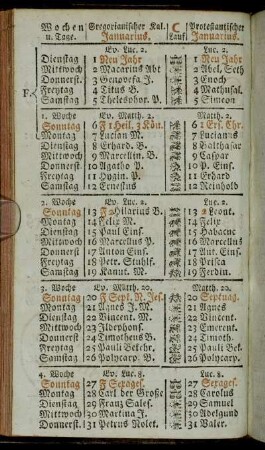 Wochen Gregorianischer Kal. C Protestantischer
u. Tage. Januarius. Lauf Januarius.
Ev. Luc. 2. Luc. 2.
Dienstag 1 Neu Jahr 1 Neu Jahr
Mittwoch 2 Macarius Abt 2 Abel, Seth
Donnerst 3 Genovefa J. 3 Enoch
F. Freytag 4 Titus B. 4 Mathusal.
Samstag 5 Thelesphor. P. 5 Simeon
1. Woche Ev. Matth. 2. Matth. 2.
Sonntag 6 F Heil. 3 Kön. 6 Ers. Ehr.
Montag 7 Lucian M. 7 Lucianus
Dienstag 8 Erhard. B. 8 Balthasar
Mittwoch 9 Marcellin. B. 9 Caspar
Donnerst 10 Agatho P. 10 P. Eins.
Freytag 11 Hygin. P. 11 Erhard
Samstag 12 Ernestus 12 Reinhold
2. Woche Ev. Luc. 2. Luc. 2.
Sonntag 13 F Hilarius B. 13 Leont.
Montag 14 Felix M. 14 Felix
Dienstag 15 Paul Eins. 15 Habacuc
Mittwoch 16 Marcellus P. 16 Marcellus
Donnerst 17 Anton Eins. 17 Ant. Eins.
Freytag 18 Petr. Stuhlf. 18 Prisca
Samstag 19 Kanut. M. 19 Ferdin.
3. Woche Ev. Matth. 20. Matth. 20.
Sonntag 20 F Sept. N. Jes. 20 Septuag.
Montag 21 Agnes J. M. 21 Agnes
Dienstag 22 Vincent. M. 22 Vincent.
Mittwoch 23 Ildephons. 23 Emerent.
Donnerst 24 Timotheus B. 24 Timoth.
Freytag 25 Pauli Bekehr. 25 Pauli Bek.
Samstag 26 Polycarp. B. 26 Polycarp.
4. Woche Ev. Luc. 8. Luc. 8.
Sonntag 27 F Sexages. 27 Sexages.
Montag 28 Carl der Große 28 Carolus
Dienstag 29 Franz Sales. 29 Samuel
Mittwoch 30 Martina J. 30 Adelgund
Donnerst. 31 Petrus Nolat. 31 Valer.